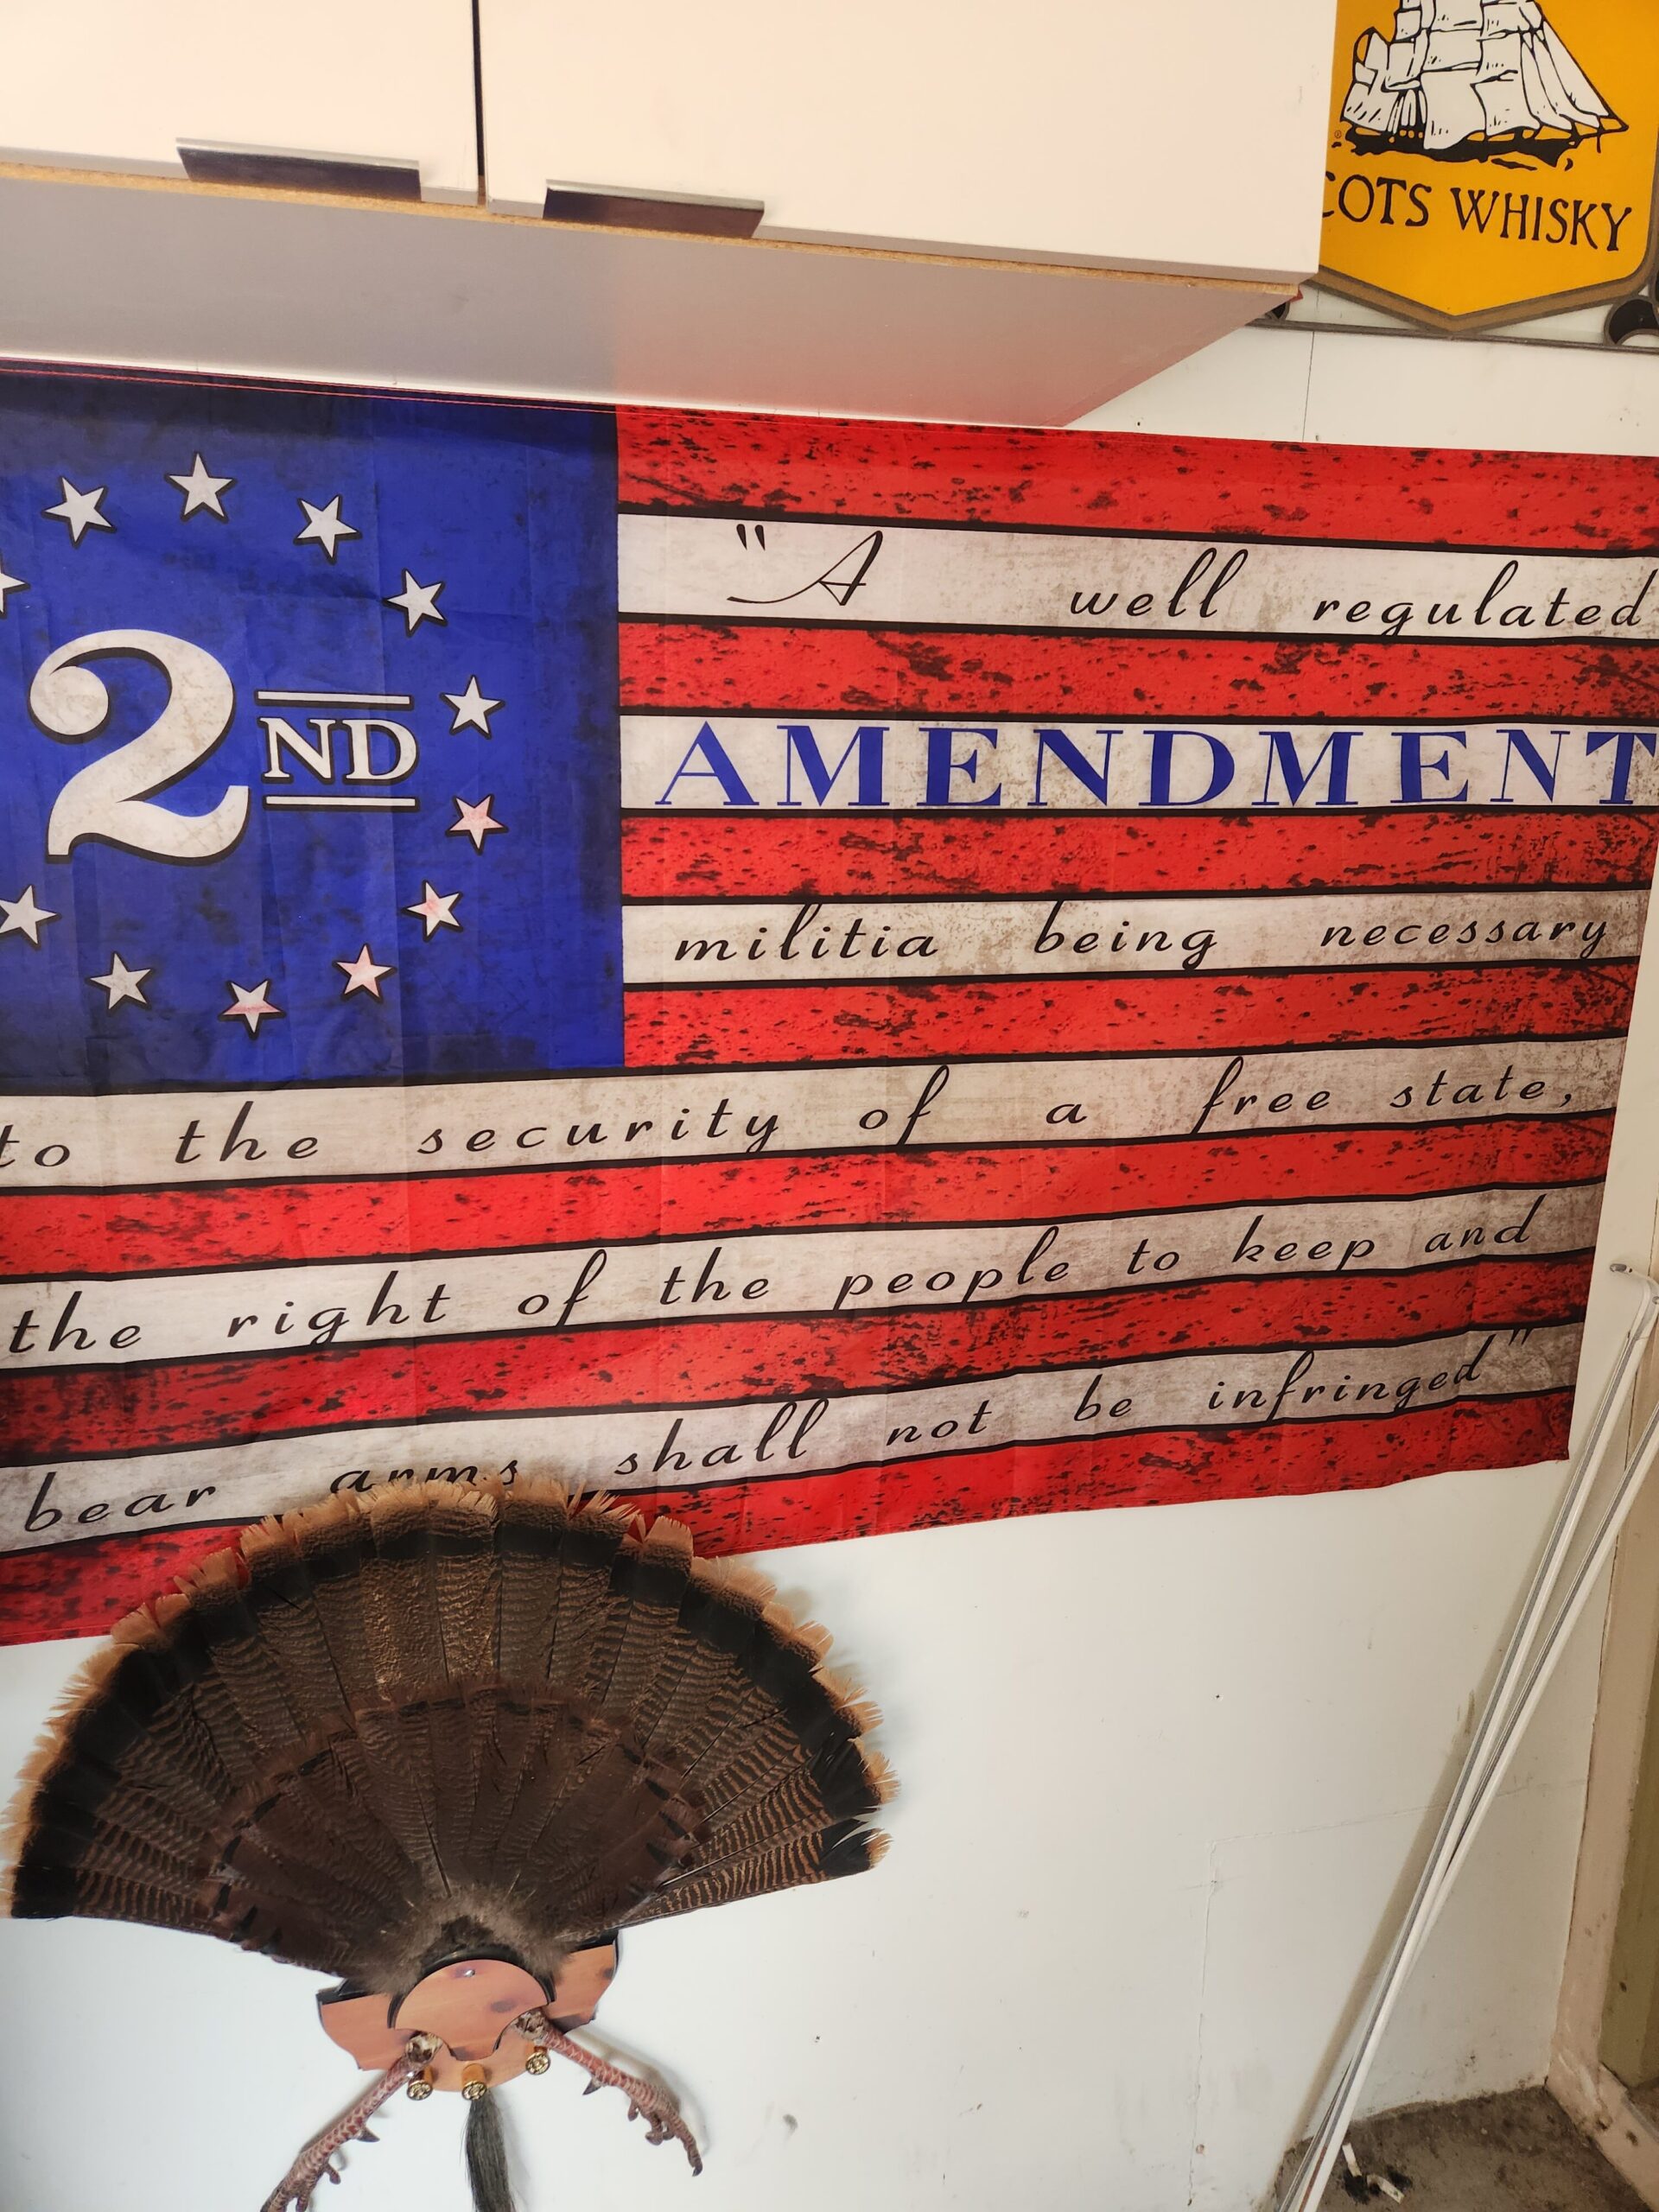 COTS WHISKY
"A well regulated
2ND
AMENDMENT
militia being necessary
to the security of a free state,
the right of the people to keep and
bear arms shall not be infringed"